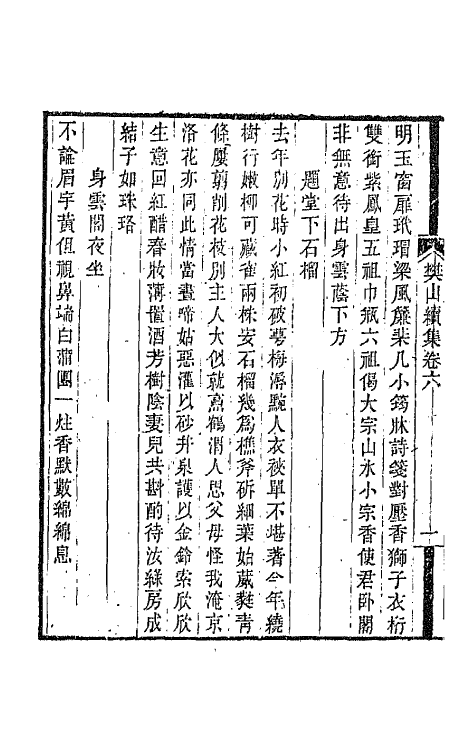 樊山續集卷六
一
明玉窗扉玳瑁梁風簾棐几小筠牀詩箋對壓香獅子衣桁
雙銜紫鳳皇五祖巾瓶六祖偈大宗山水小宗香使君卧閣
非無意待出身雲蔭下方
題堂下石榴
去年別花時小紅初破萼梅溽𪑙人衣裌單不堪著今年繞
樹行嫩柳可藏雀兩株安石榴幾爲樵斧斫細葉始葳蕤靑
條屢翦削花枝別主人大似就焉鶴渭人思父母怪我淹京
洛花亦同此情當晝啼姑惡灌以砂井泉護以金鈴索欣欣
生意回紅醋春妝薄催酒芳樹陰妻兒共斟酌待汝綠房成
結子如珠珞
身雲閣夜坐
不論眉宇黃但視鼻端白蒲團一炷香默數綿綿息